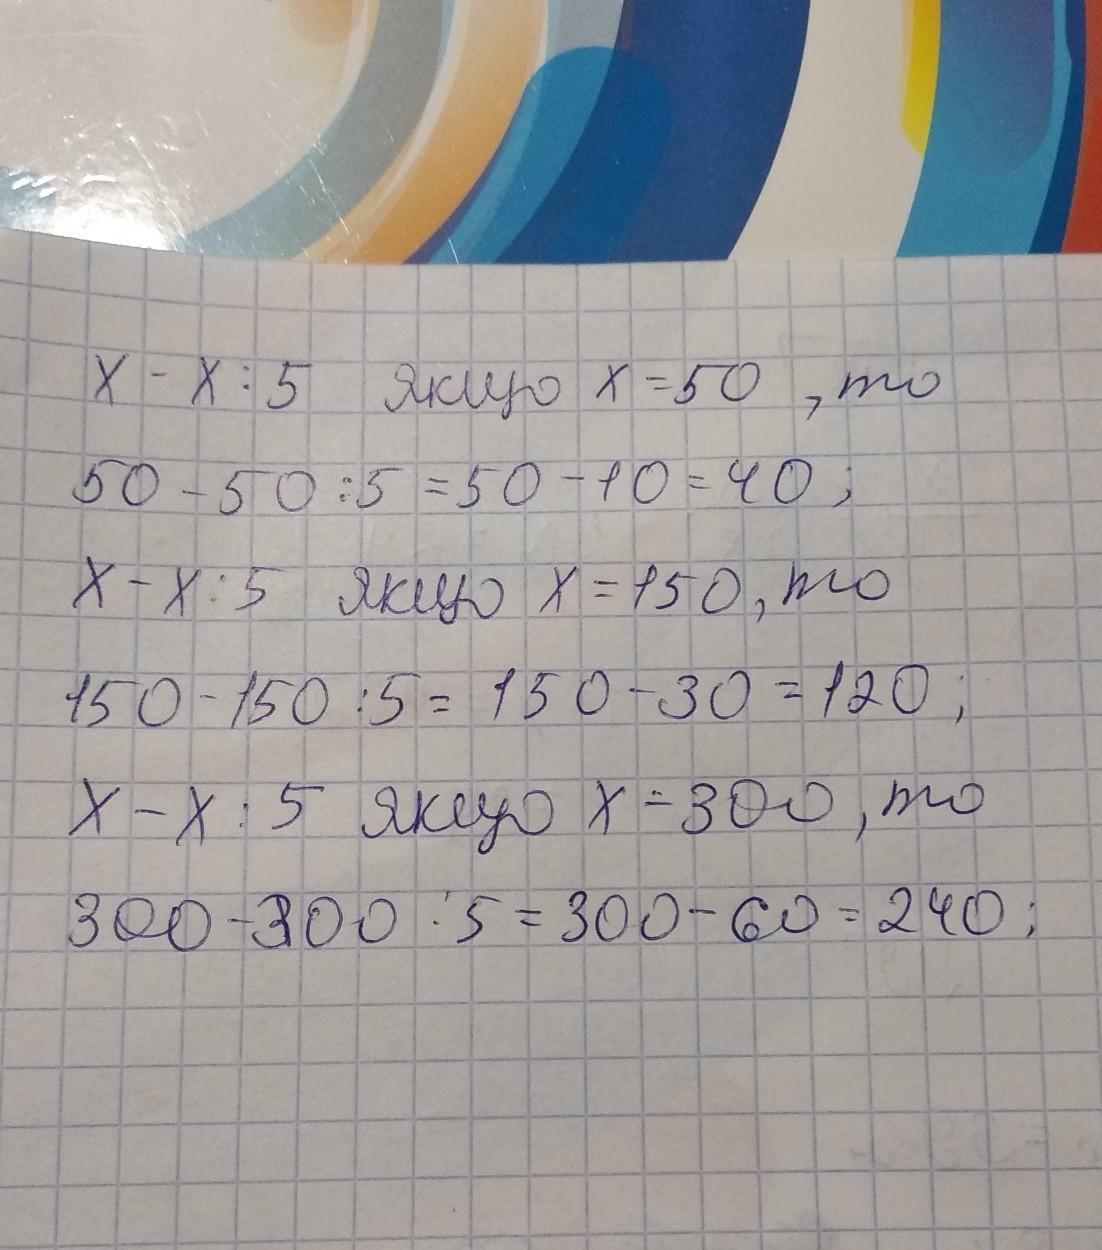 x - x : 5 якщо x = 50 , то
50 - 50 : 5 = 50 - 10 = 40 ;
x - x : 5 якщо x = 150, то
150 - 150 : 5 = 150 - 30 = 120 ;
x - x : 5 якщо x = 300, то
300 - 300 : 5 = 300 - 60 = 240 ;